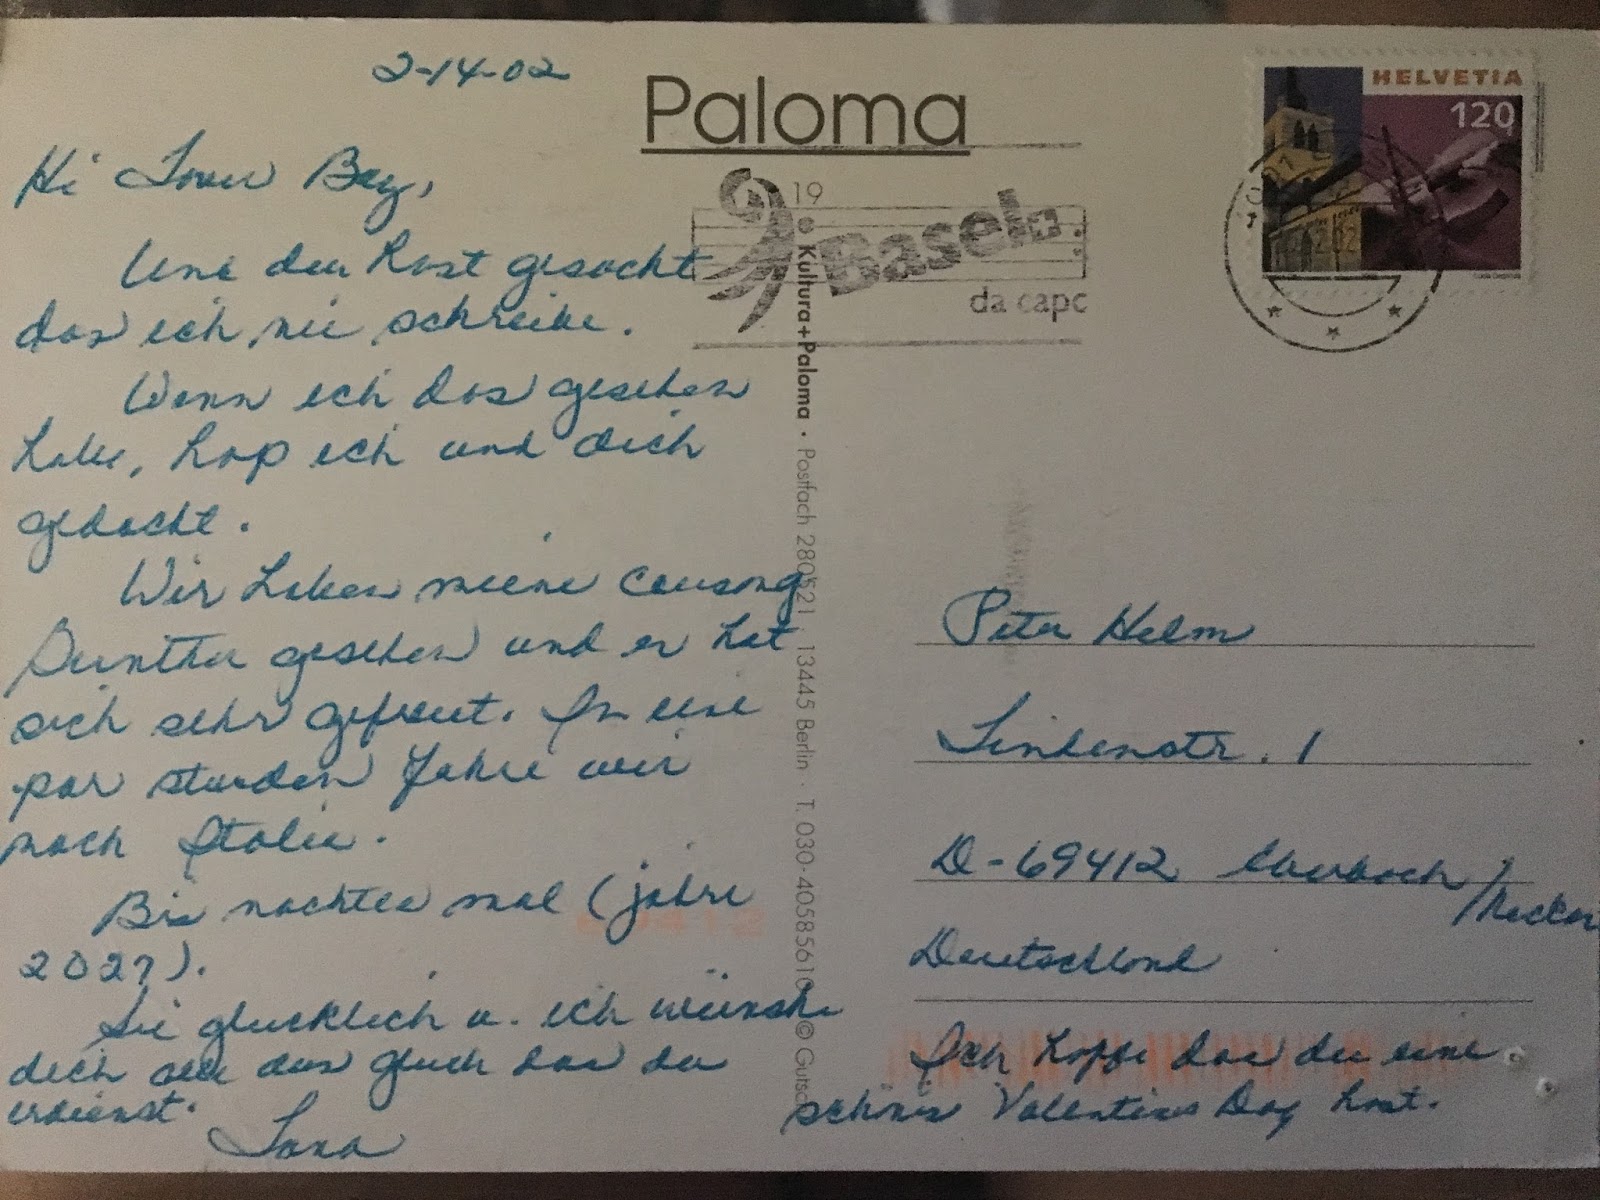 2-14-02
Hi Lover Boy,
Une du hast gesacht
das ich nie schreibe.
Wenn ich das gesehen
habe, hap ich und dich
gedacht.
Wir haben meine
gesehen und er hat
sich sehr gefreut. In eine
par stunden fahre wir
nach Italie.
Bis nachtes mal (jahre
202?).
Sie glucklich u. ich wünsh
dich all das gluck das du
erdienst.
Lana
Paloma
19
Basel
da capo
HELVETIA
120
© Kultura+Paloma · Postfach 280521 · 13445 Berlin · T. 030-4058561 © Gutsc
Peter Helm
Lindenstr. 1
D-69412 Eberbach/Neckar
Deutschland
69412
Ich hoffe das du eine
schönes Valentines Day hast.